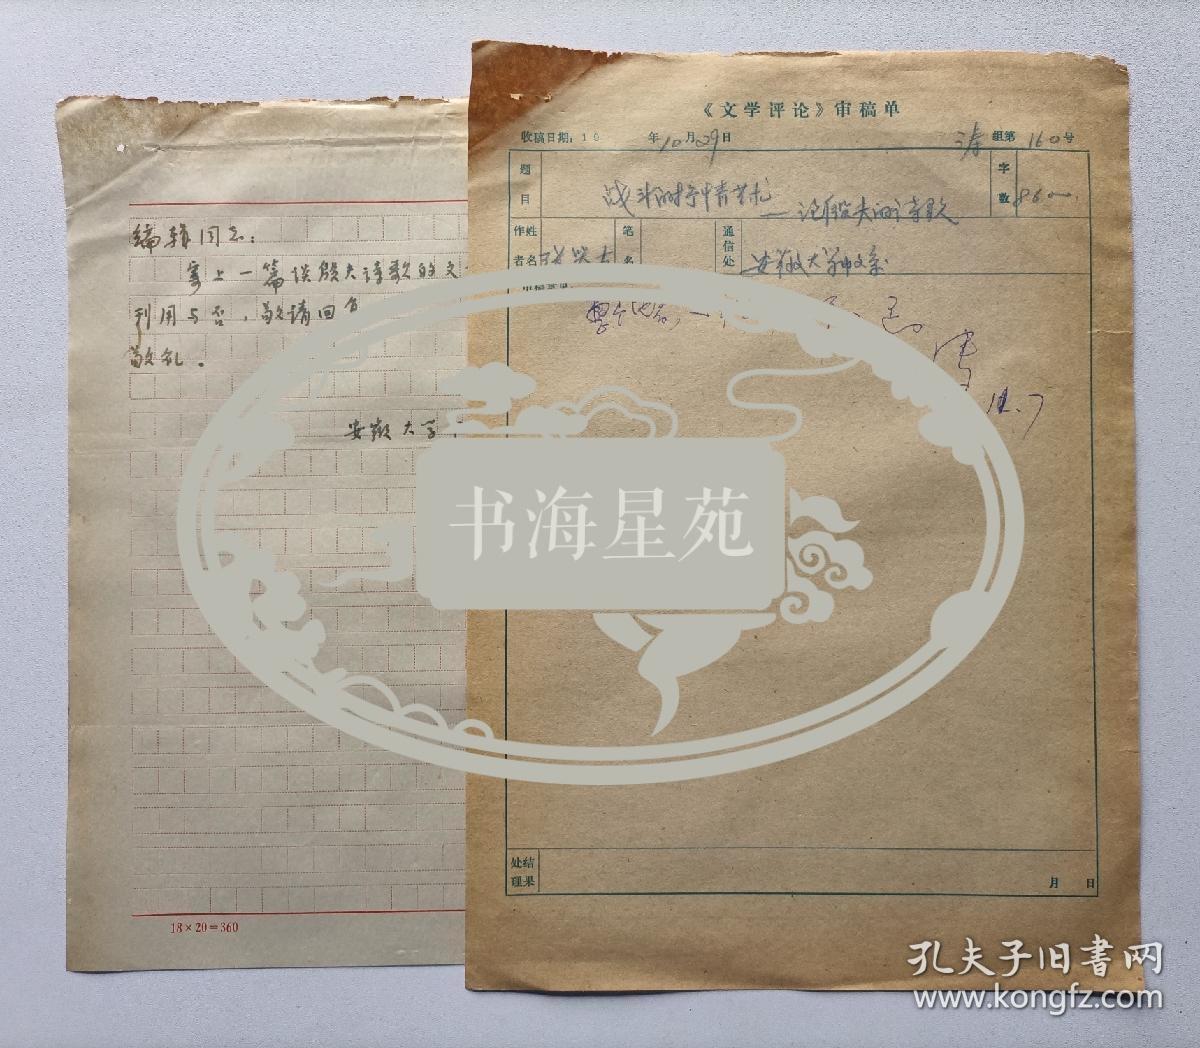 编辑同志：
寄上一篇谈殷夫诗歌的文
利用与否，敬请回
敬礼。
安徽大学
18×20=360
《文学评论》审稿单
收稿日期：19 年10月29日 组第160号
题目 战斗的抒情艺术 字数 8600
——论殷夫的诗歌
作者姓名 笔名 通信处 安徽大学中文系
审稿意见
11.7
处理结果 月 日
书海星苑
孔夫子旧书网
www.kongfz.com